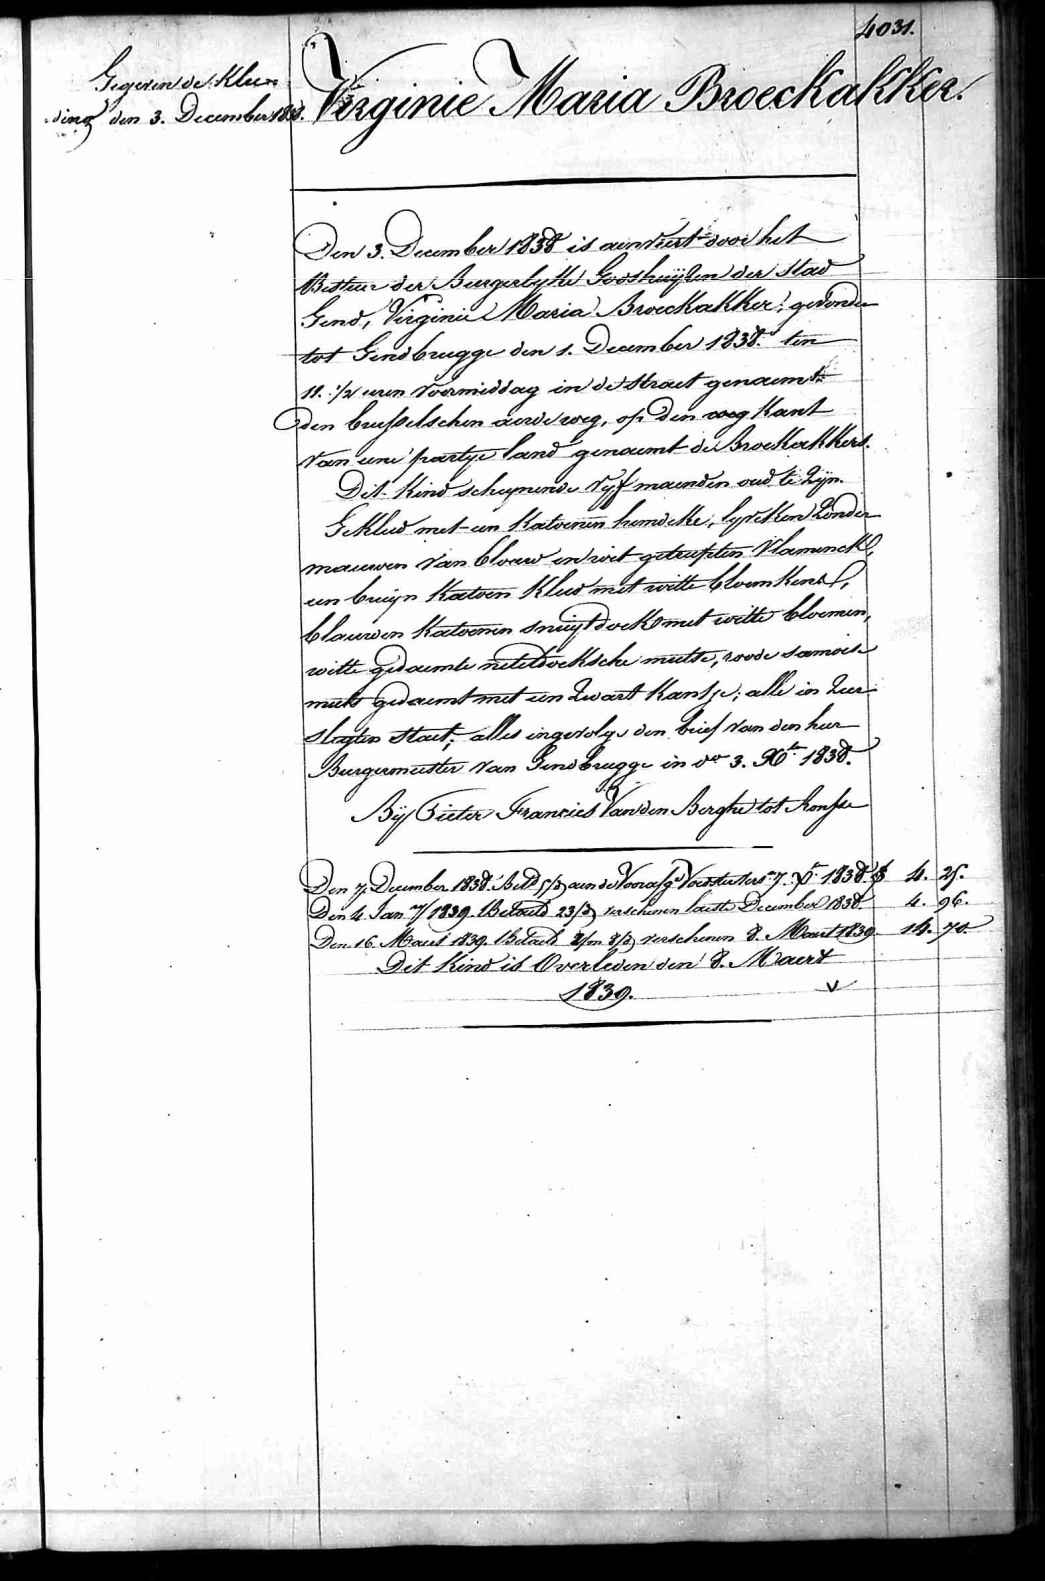 4031.
Gegeven de Klee-
ding den 3. December 1838.
Virginie Maria Broeckakker.
Den 3. December 1838 is aenveert door het
Bestuer der Burgerlyke Godshuijzen der stad
Gend, Virginie Maria Broeckakker; gevonden
tot Gendbrugge den 1. December 1838. ten
11. 1/2 uren voormiddag in de straet genaemt
den brusselschen aerdeweg, op den weg kant
van eene partye land genaemt de Broekakkers.
Dit Kind schynende vyf maenden oud te zijn.
Gekleed met een katoenen hemdeke, lyveken zonder
mauwen van blauw en wit
een bruijn katoen kleed met witte bloemkens,
blauwen katoenen snuijtdoek met witte bloemen,
witte gedaemte neteldoeksche mutse, roode
muts met een zwart kantje; alle in zeer
slegten staet; alles ingevolge den brief van den heer
Burgermeester van Gendbrugge in do 3. Xbr 1838.
Bij Pieter Francies Van den Berghe tot Ronsse
Den 7. December 1838. aen de Voorafge 7. Xbr 1838. 4. 25.
Den 4. Jany 1839. Betaeld 23/d verschenen laeste December 1838. 4. 96.
Den 16. Maert 1839. Betaeld 2/m 8/d verschenen 8. Maert 1839. 14. 70.
Dit Kind is Overleden den 8. Maert
1839. v